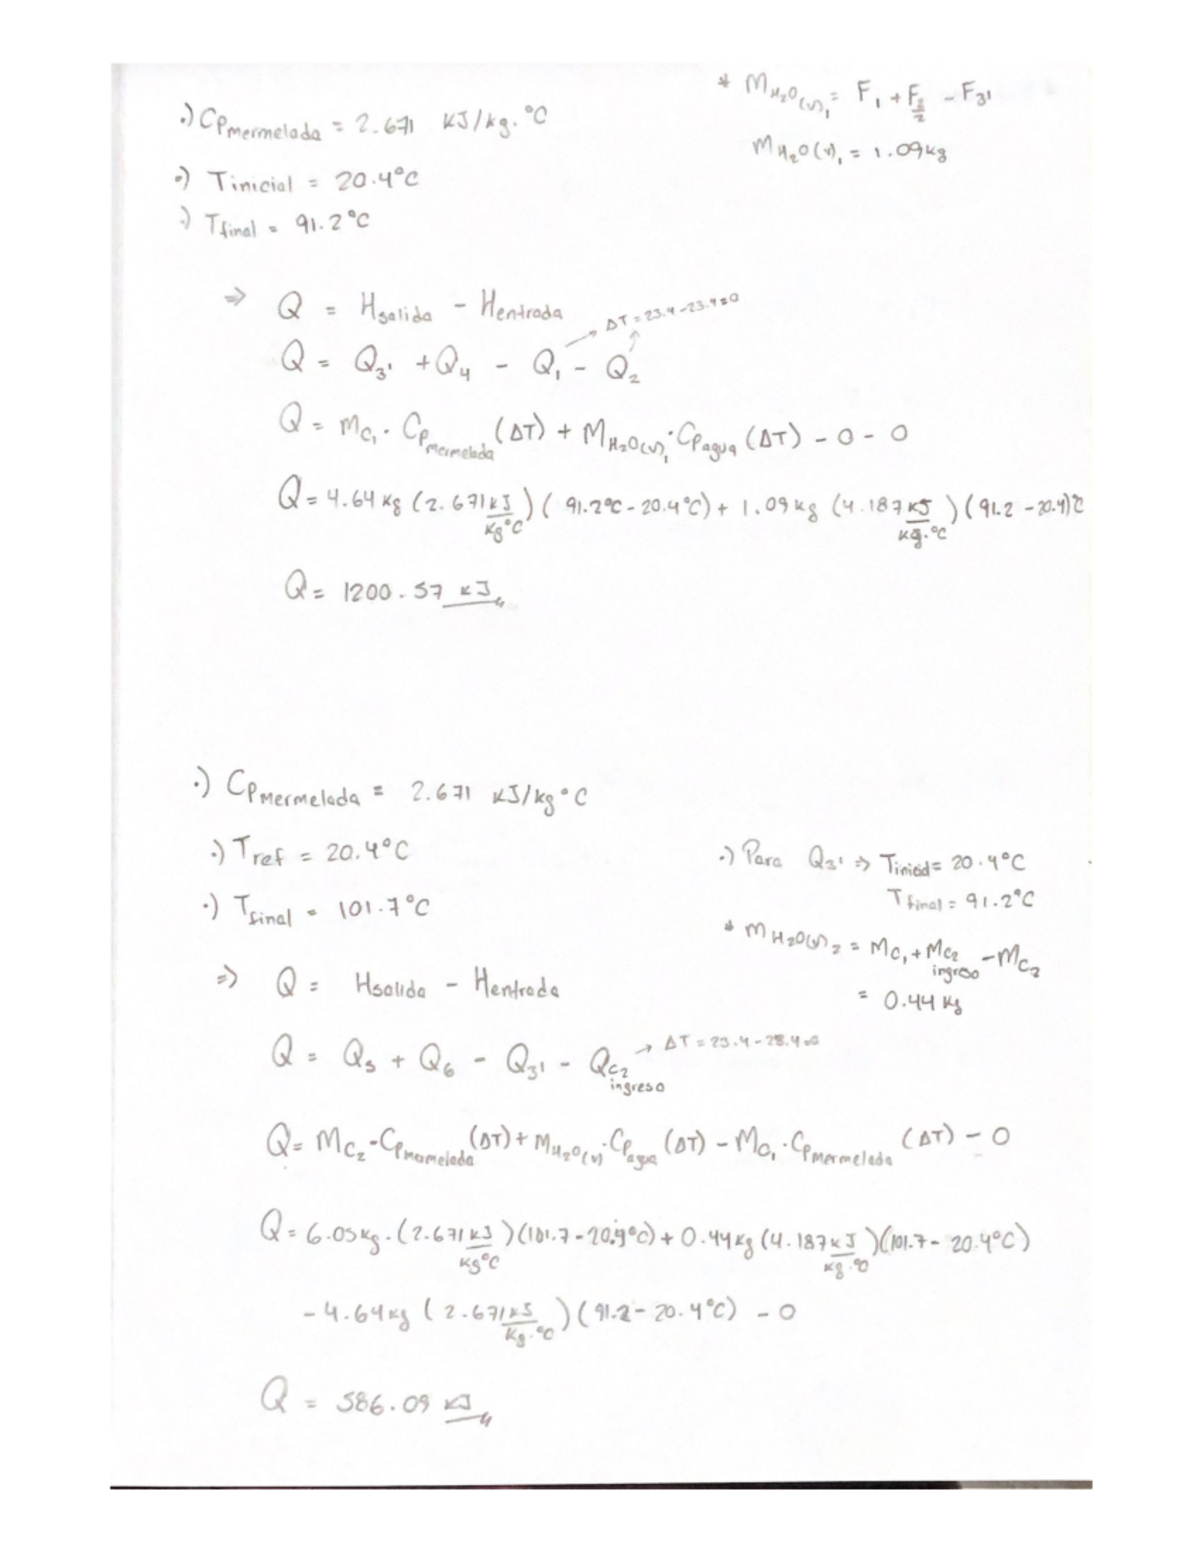 * M_H₂O(v)₁ = F₁ + F_2/2 - F₃'
M_H₂O(v)₁ = 1.09 kg
·) Cp_mermelada = 2.671 KJ/kg.°C
·) Tinicial = 20.4°C
·) Tfinal = 91.2°C
⇒ Q = Hsalida - Hentrada
→ ΔT = 23.4 - 23.4 = 0
Q = Q₃' + Q₄ - Q₁ - Q₂
Q = m_C₁ · Cp_mermelada (ΔT) + M_H₂O(v)₁ · Cp_agua (ΔT) - 0 - 0
Q = 4.64 kg (2.671 kJ/kg°C) (91.2°C - 20.4°C) + 1.09 kg (4.187 kJ/kg.°C) (91.2 - 20.4)°C
Q = 1200.57 kJ
·) Cp_Mermelada = 2.671 kJ/kg°C
·) Tref = 20.4°C
·) Tfinal = 101.7°C
·) Para Q₃' ⇒ Tinicial = 20.4°C
Tfinal = 91.2°C
* m_H₂O(v)₂ = M_C₁ + M_C₂ ingreso - M_C₂
= 0.44 kg
⇒ Q = Hsalida - Hentrada
Q = Q₅ + Q₆ - Q₃' - Q_C₂ ingreso → ΔT = 23.4 - 23.4 = 0
Q = M_C₂ · Cp_mermelada (ΔT) + M_H₂O(v) · Cp_agua (ΔT) - M_C₁ · Cp_mermelada (ΔT) - 0
Q = 6.05 kg · (2.671 kJ/kg°C) (101.7 - 20.4°C) + 0.44 kg (4.187 kJ/kg.°C) (101.7 - 20.4°C)
- 4.64 kg (2.671 kJ/kg.°C) (91.2 - 20.4°C) - 0
Q = 586.09 kJ